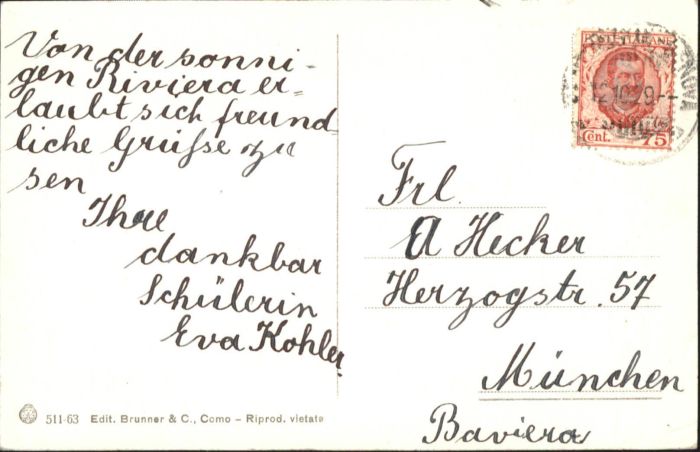 Von der sonni-
gen Riviera er-
laubt sich freund-
liche Grüße zu
sen
Ihre
dankbar
Schülerin
Eva Kohler.
POSTE ITALIANE
12.10.29.--
Cent. 75
Frl.
A Hecker
Herzogstr. 57
München
Baviera
511-63 Edit. Brunner & C., Como - Riprod. vietata